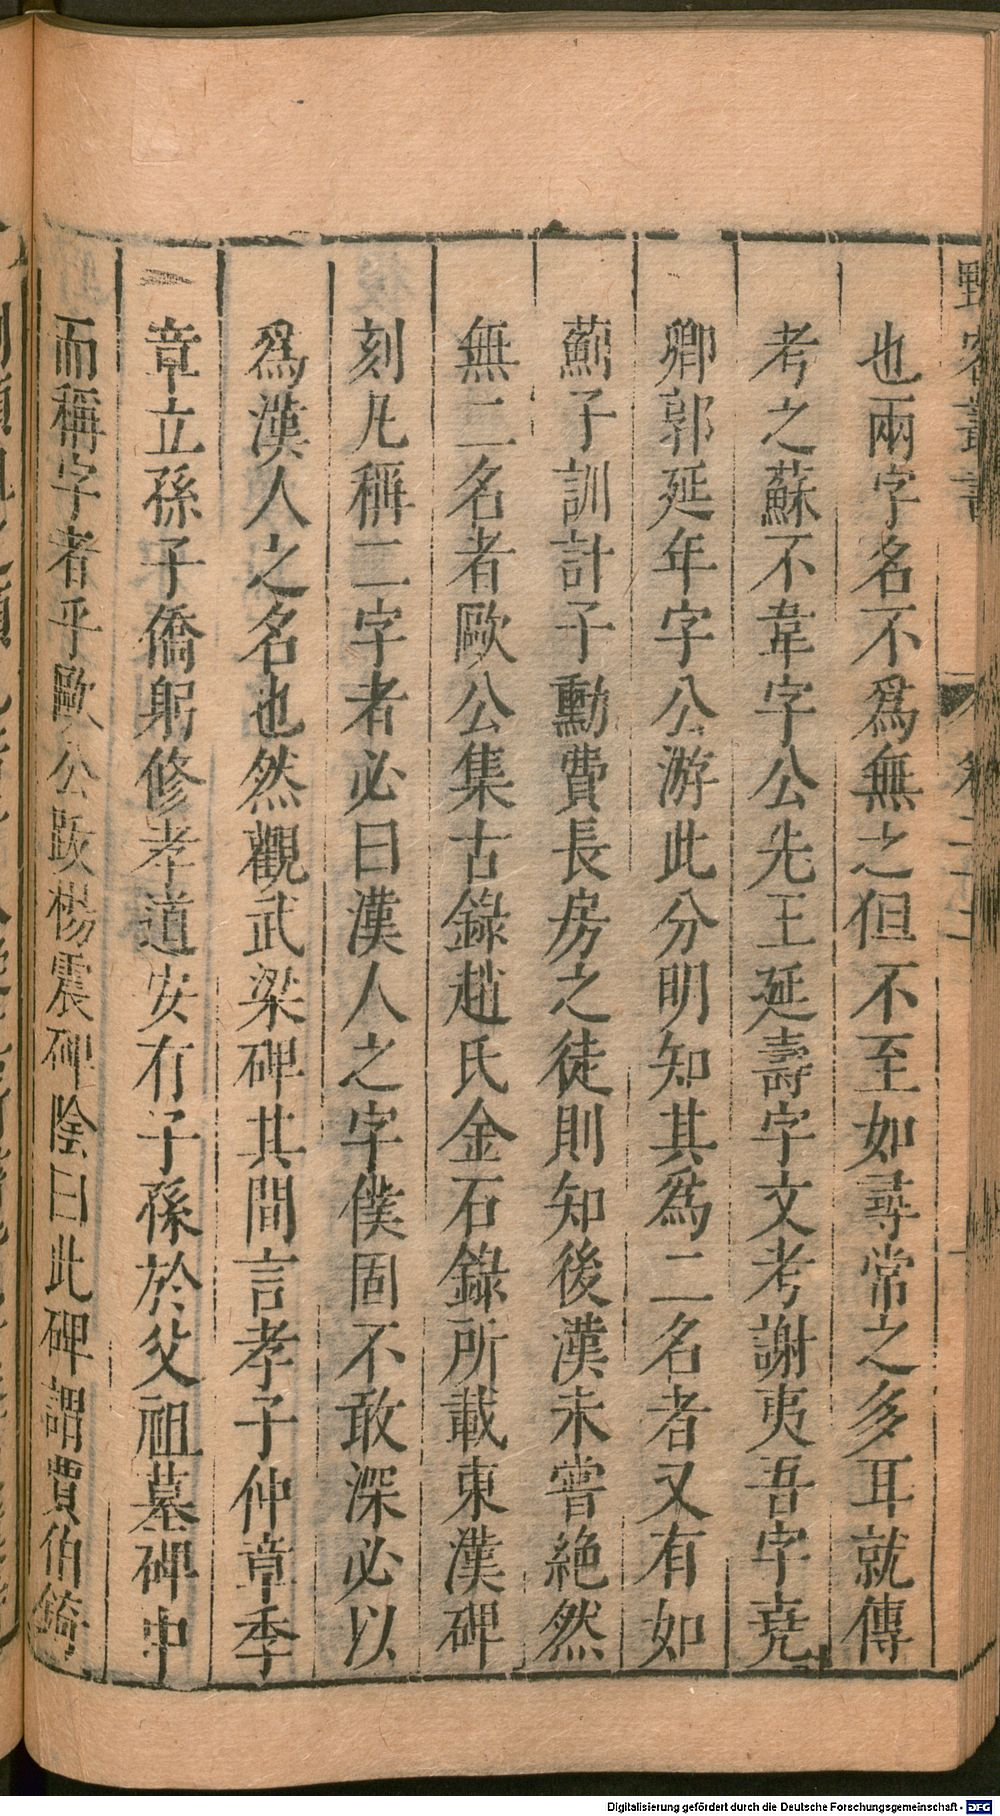 野客叢書
卷二十二
也兩字名不爲無之但不至如尋常之多耳就傳
考之蘇不韋字公先王延壽字文考謝夷吾字堯
卿郭延年字公游此分明知其爲二名者又有如
薊子訓計子勳費長房之徒則知後漢未嘗絕然
無二名者歐公集古錄趙氏金石錄所載東漢碑
刻凡稱二字者必曰漢人之字僕固不敢深必以
爲漢人之名也然觀武梁碑其間言孝子仲章季
章立孫子僑躬修孝道安有子孫於父祖墓碑中
而稱字者乎歐公跋楊震碑陰曰此碑謂賈伯錡
Digitalisierung gefördert durch die Deutsche Forschungsgemeinschaft - DFG